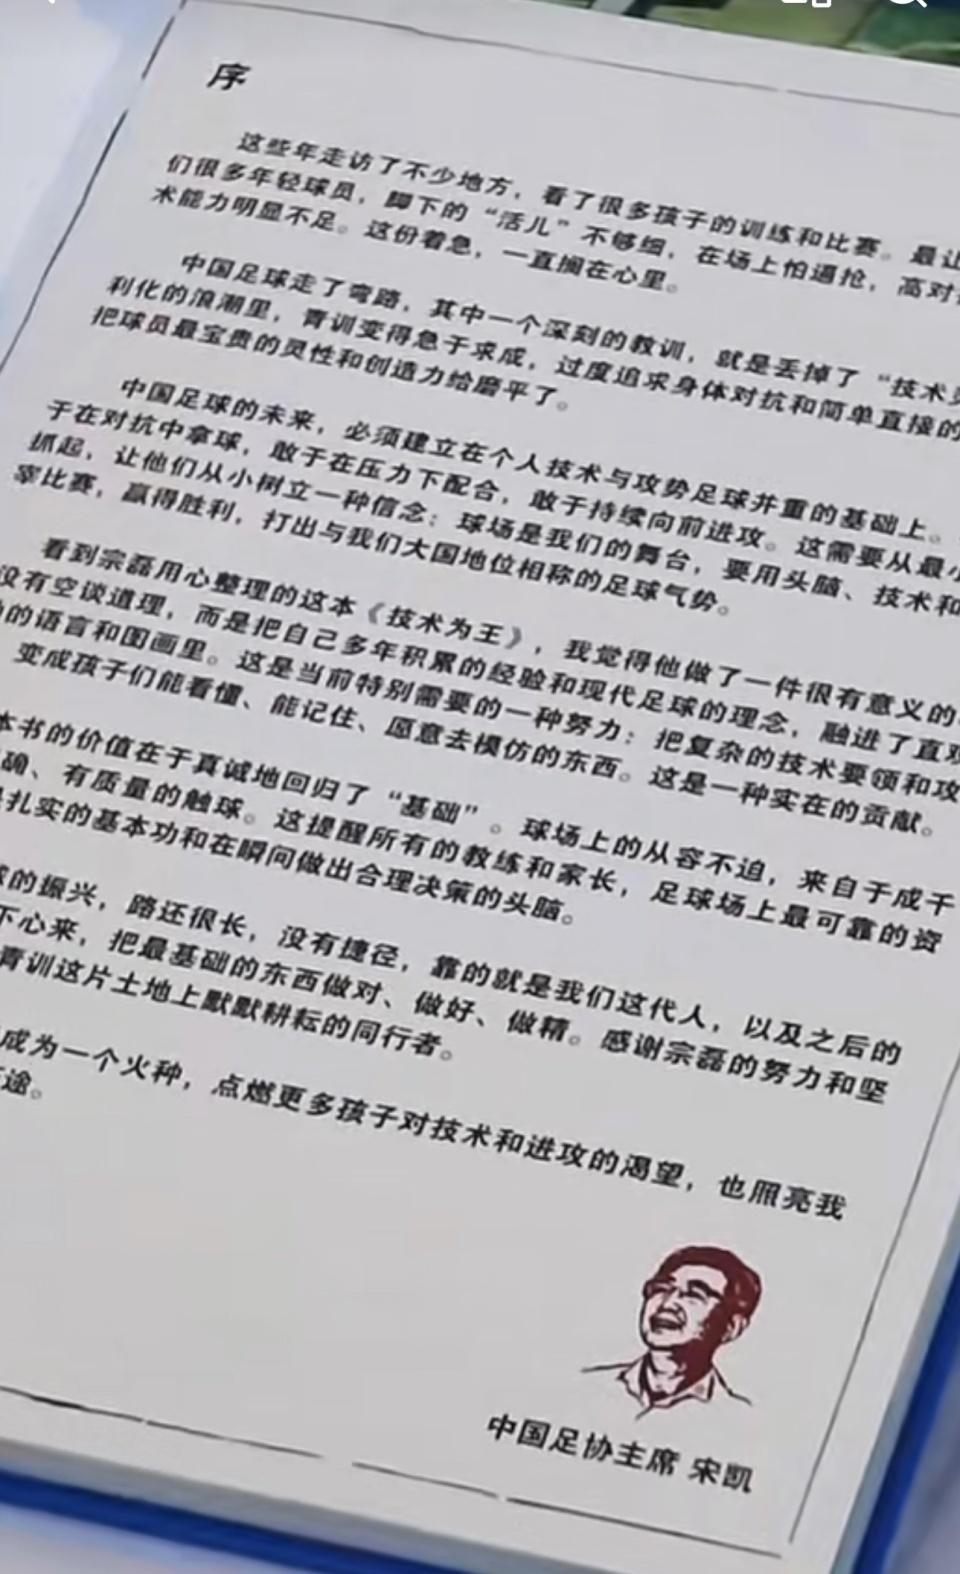 序
这些年走访了不少地方，看了很多孩子的训练和比赛。最让
们很多年轻球员，脚下的“活儿”不够细，在场上怕逼抢，高对
术能力明显不足。这份着急，一直搁在心里。
中国足球走了弯路，其中一个深刻的教训，就是丢掉了“技术
利化的浪潮里，青训变得急于求成，过度追求身体对抗和简单直接的
把球员最宝贵的灵性和创造力给磨平了。
中国足球的未来，必须建立在个人技术与攻势足球并重的基础上。
于在对抗中拿球，敢于在压力下配合，敢于持续向前进攻。这需要从最小
抓起，让他们从小树立一种信念：球场是我们的舞台，要用头脑、技术和
宰比赛，赢得胜利，打出与我们大国地位相称的足球气势。
看到宗磊用心整理的这本《技术为王》，我觉得他做了一件很有意义的
没有空谈道理，而是把自己多年积累的经验和现代足球的理念，融进了直观
的语言和图画里。这是当前特别需要的一种努力：把复杂的技术要领和攻
变成孩子们能看懂、能记住、愿意去模仿的东西。这是一种实在的贡献。
本书的价值在于真诚地回归了“基础”。球场上的从容不迫，来自于成千
确、有质量的触球。这提醒所有的教练和家长，足球场上最可靠的资
是扎实的基本功和在瞬间做出合理决策的头脑。
的振兴，路还很长，没有捷径，靠的就是我们这代人，以及之后的
下心来，把最基础的东西做对、做好、做精。感谢宗磊的努力和坚
青训这片土地上默默耕耘的同行者。
成为一个火种，点燃更多孩子对技术和进攻的渴望，也照亮我
途。
中国足协主席 宋凯